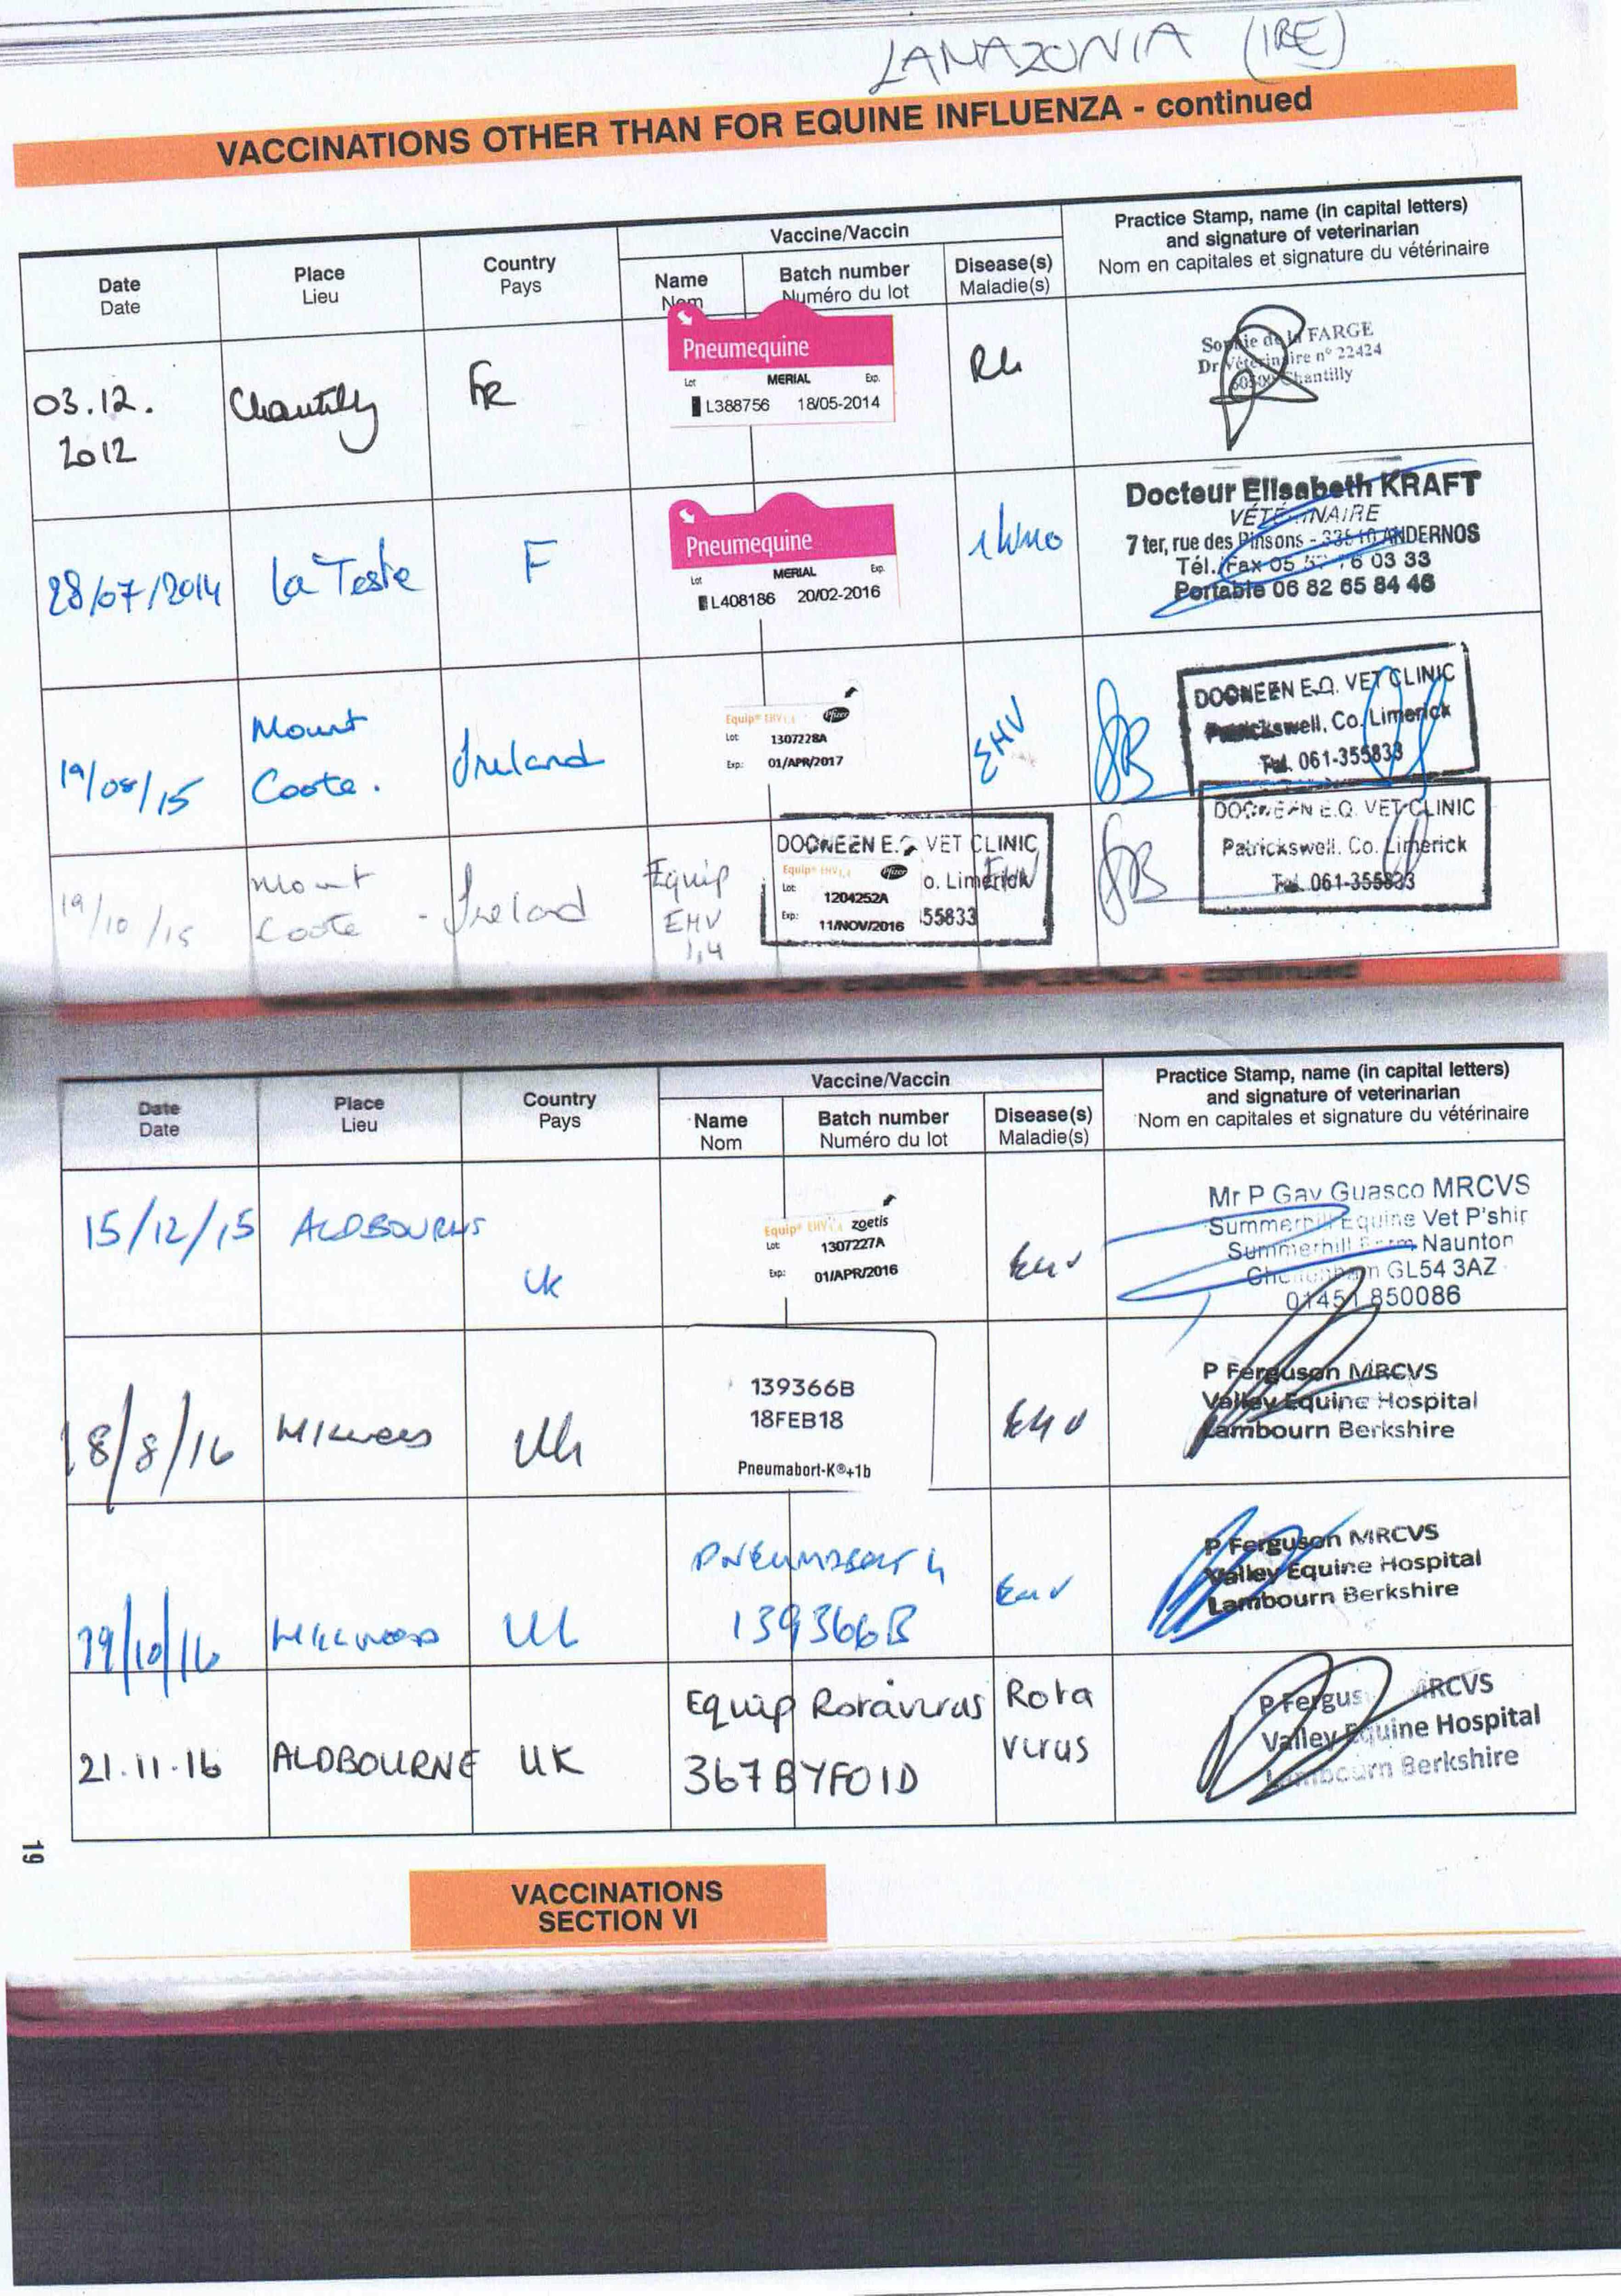 LANAZONIA (IRE)
VACCINATIONS OTHER THAN FOR EQUINE INFLUENZA - continued
Date
Date
Place
Lieu
Country
Pays
Vaccine/Vaccin
Name
Nom
Batch number
Numéro du lot
Disease(s)
Maladie(s)
Practice Stamp, name (in capital letters)
and signature of veterinarian
Nom en capitales et signature du vétérinaire
03.12.
2012
Chantilly
FR
Pneumequine
Lot MERIAL Exp.
L388756 18/05/2014
Rh
Sophie de la FARGE
Dr Vétérinaire n° 22424
60500 Chantilly
28/07/2014
La Teste
F
Pneumequine
Lot MERIAL Exp.
L408186 20/02-2016
Docteur Elisabeth KRAFT
VÉTÉRINAIRE
7 ter, rue des Pinsons - 33510 ANDERNOS
Tél./Fax 05 76 03 33
Portable 06 82 65 84 46
19/08/15
Mount
Coote.
Ireland
Equip® EHV1,4 Pfizer
Lot: 1307228A
Exp.: 01/APR/2017
EHV
DOONEEN E.Q. VET CLINIC
Patrickswell, Co. Limerick
Tel. 061-355833
19/10/15
Mount
Coote
- Ireland
Equip
EHV
1,4
DOONEEN E.Q. VET CLINIC
Equip® EHV1,4 Pfizer
o. Limerick
Lot: 1204252A
Exp.: 11/NOV/2016
55833
EHV
DOONEEN E.Q. VET CLINIC
Patrickswell. Co. Limerick
Tel. 061-355833
Date
Date
Place
Lieu
Country
Pays
Vaccine/Vaccin
Name
Nom
Batch number
Numéro du lot
Disease(s)
Maladie(s)
Practice Stamp, name (in capital letters)
and signature of veterinarian
Nom en capitales et signature du vétérinaire
15/12/15
ALDBOURNE
UK
Equip® EHV1,4 zoetis
Lot: 1307227A
Exp.: 01/APR/2016
EHV
Mr P Gay Guasco MRCVS
Summerhill Equine Vet P'ship
Summerhill Farm Naunton
Cheltenham GL54 3AZ
01451 850086
18/8/16
UK
139366B
18FEB18
Pneumabort-K®+1b
EHV
P Ferguson MRCVS
Valley Equine Hospital
Lambourn Berkshire
19/10/16
UK
PNEUMABORT K
139366B
EHV
P Ferguson MRCVS
Valley Equine Hospital
Lambourn Berkshire
21.11.16
ALDBOURNE
UK
Equip Rotavirus
367BYF01D
Rota
virus
P Ferguson MRCVS
Valley Equine Hospital
Lambourn Berkshire
19
VACCINATIONS
SECTION VI